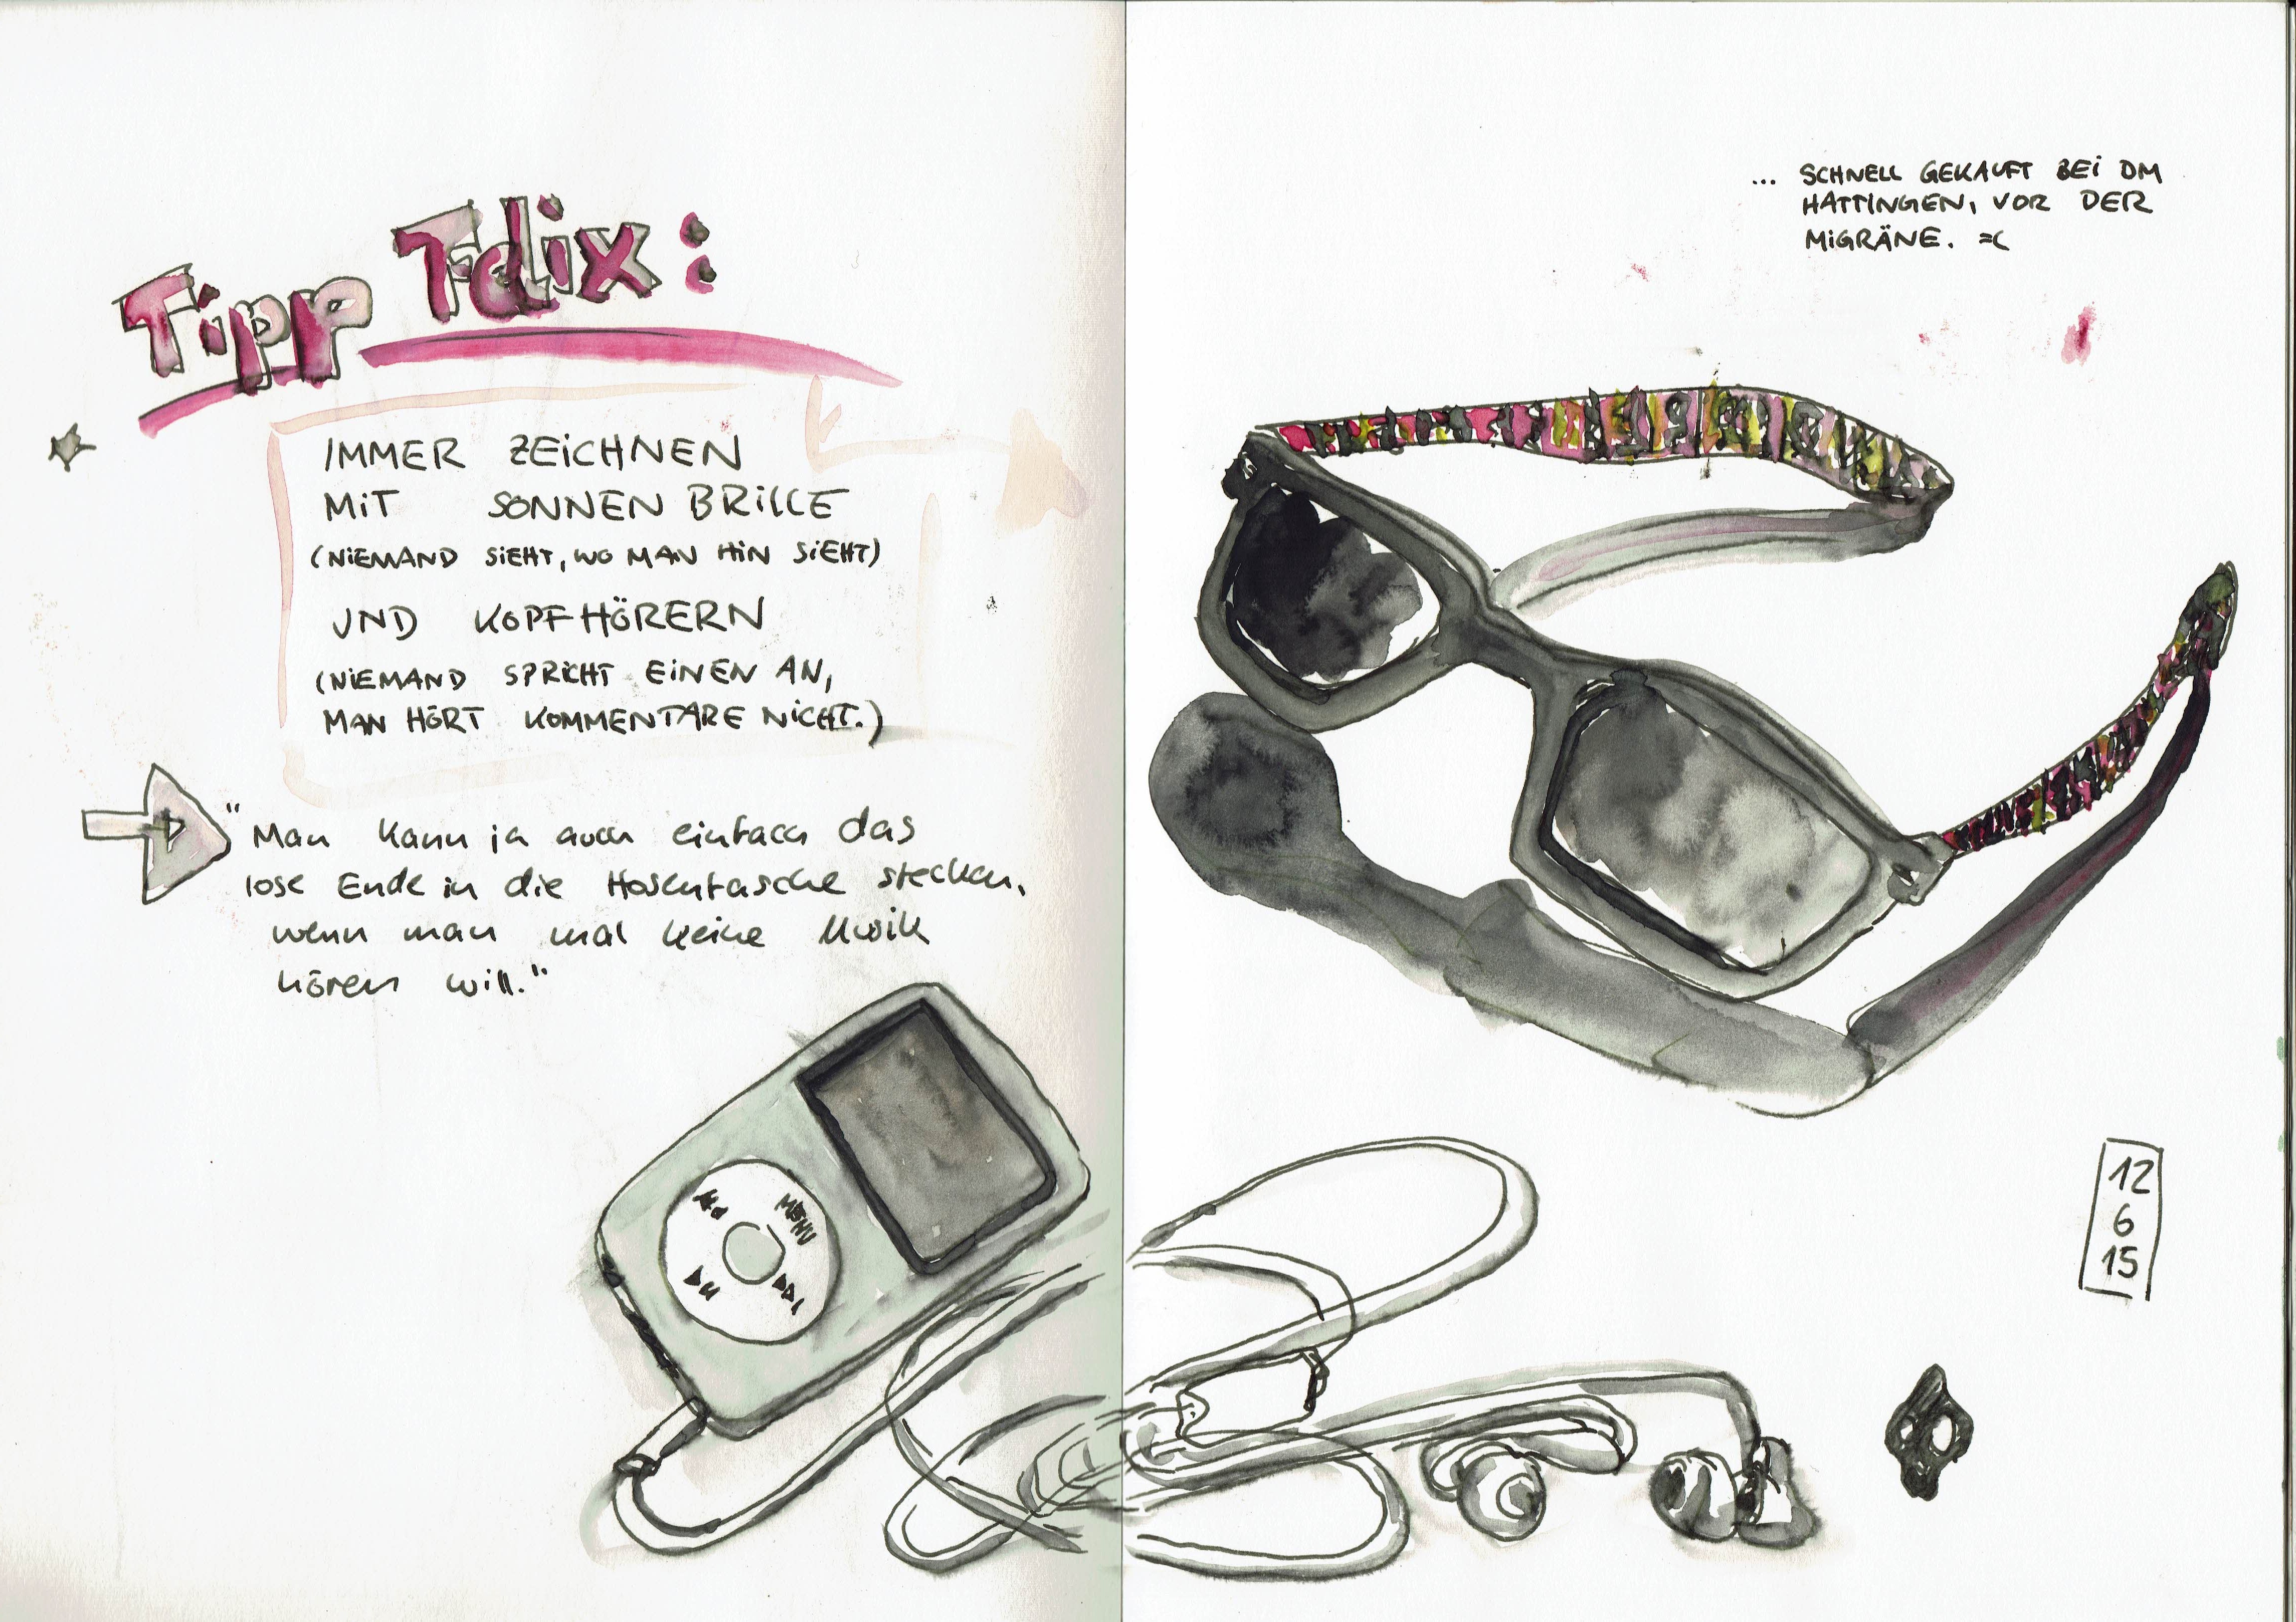 Tipp Felix:
IMMER ZEICHNEN
MIT SONNENBRILLE
(NIEMAND SIEHT, WO MAN HIN SIEHT)
UND KOPFHÖRERN
(NIEMAND SPRICHT EINEN AN,
MAN HÖRT KOMMENTARE NICHT.)
"Man kann ja auch einfach das
lose Ende in die Hosentasche stecken,
wenn man mal keine Musik
hören will."
MENU
... SCHNELL GEKAUFT BEI DM
HATTINGEN, VOR DER
MIGRÄNE. =(
12
6
15